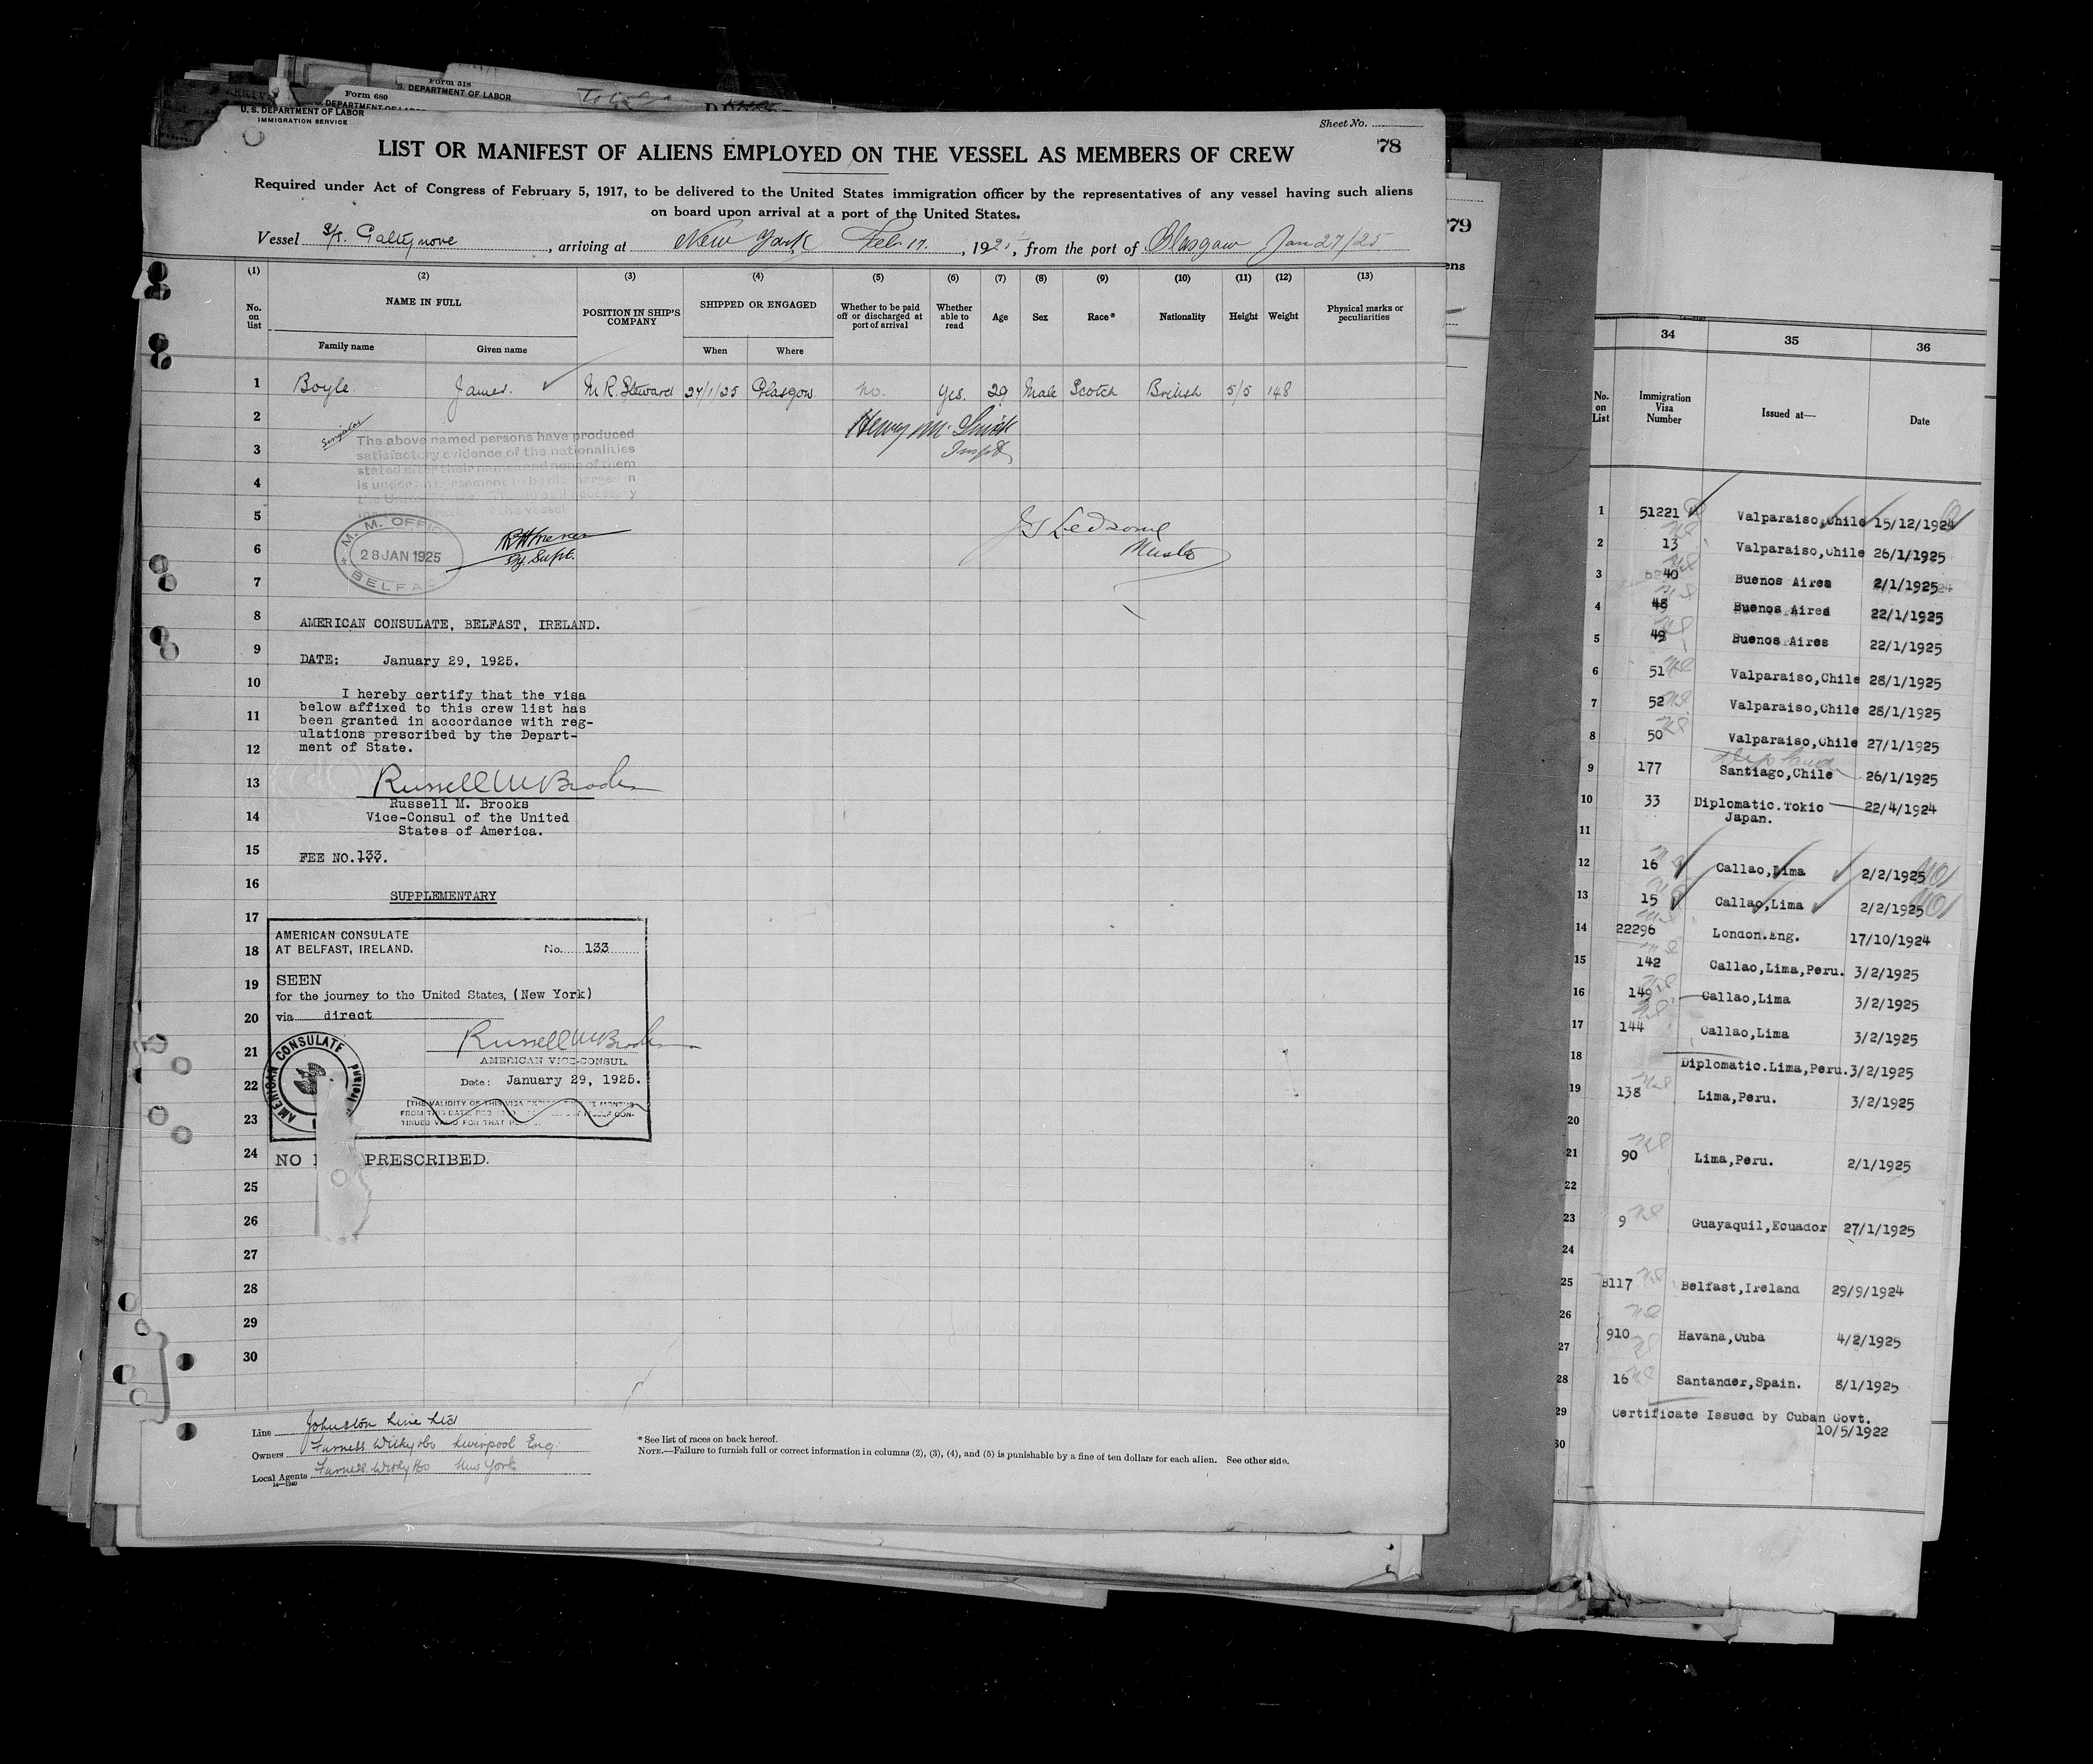 Form 518
S. DEPARTMENT OF LABOR
Form 680
DEPARTMENT OF LABOR
U. S. DEPARTMENT OF LABOR
IMMIGRATION SERVICE
Sheet No.
78
LIST OR MANIFEST OF ALIENS EMPLOYED ON THE VESSEL AS MEMBERS OF CREW
Required under Act of Congress of February 5, 1917, to be delivered to the United States immigration officer by the representatives of any vessel having such aliens
on board upon arrival at a port of the United States.
Vessel S/S. Galtymore, arriving at New York Feb. 17., 1925, from the port of Glasgow Jan 27/25
(1) (2) (3) (4) (5) (6) (7) (8) (9) (10) (11) (12) (13)
No. on list
NAME IN FULL
Family name Given name
POSITION IN SHIP'S COMPANY
SHIPPED OR ENGAGED
When Where
Whether to be paid off or discharged at port of arrival
Whether able to read
Age Sex Race* Nationality Height Weight
Physical marks or peculiarities
1 Boyle James. M. R. Steward 27/1/25 Glasgow no. Yes. 29 Male Scotch British 5/5 148
2
Henry
3
Inspt
The above named persons have produced
satisfactory evidence of the nationalities
stated after their names and none of them
4
5
6
7
M. M. OFFICE
28 JAN 1925
BELFAST
Dy. Supt.
J S Ledsome
Master
8 AMERICAN CONSULATE, BELFAST, IRELAND.
9 DATE: January 29, 1925.
10 I hereby certify that the visa
below affixed to this crew list has
11 been granted in accordance with reg-
ulations prescribed by the Depart-
12 ment of State.
13 Russell M Brooks
Russell M. Brooks
14 Vice-Consul of the United
States of America.
15 FEE NO.133.
16 SUPPLEMENTARY
17 AMERICAN CONSULATE
18 AT BELFAST, IRELAND. No. 133
19 SEEN
for the journey to the United States, (New York)
20 via direct
21 Russell M Brooks
AMERICAN VICE-CONSUL.
22 Date: January 29, 1925.
AMERICAN CONSULATE
Ireland
[THE VALIDITY OF THIS VISA
23 FROM THIS DATE
TINUES VALID FOR THAT
24 NO PRESCRIBED.
25
26
27
28
29
30
Line Johnston Line Ltd
Owners Furness Withy & Co Liverpool Eng.
Local Agents Furness Withy & Co New York
14—1240
* See list of races on back hereof.
NOTE.—Failure to furnish full or correct information in columns (2), (3), (4), and (5) is punishable by a fine of ten dollars for each alien. See other side.
79
ens
34 35 36
No. on List
Immigration Visa Number
Issued at—
Date
1 51221 Valparaiso,Chile 15/12/1924
2 13 Valparaiso,Chile 26/1/1925
3 40 Buenos Aires 2/1/1925
4 48 Buenos Aires 22/1/1925
5 49 Buenos Aires 22/1/1925
6 51 Valparaiso,Chile 28/1/1925
7 52 Valparaiso,Chile 28/1/1925
8 50 Valparaiso,Chile 27/1/1925
9 177 Santiago,Chile 26/1/1925
10 33 Diplomatic.Tokio 22/4/1924
Japan.
11
12 16 Callao,Lima 2/2/1925
13 15 Callao,Lima 2/2/1925
14 22296 London.Eng. 17/10/1924
15 142 Callao,Lima,Peru. 3/2/1925
16 149 Callao,Lima 3/2/1925
17 144 Callao,Lima 3/2/1925
18 Diplomatic.Lima,Peru. 3/2/1925
19 138 Lima,Peru. 3/2/1925
20
21 90 Lima,Peru. 2/1/1925
22
23 9 Guayaquil,Ecuador 27/1/1925
24
25 B117 Belfast,Ireland 29/9/1924
26
27 910 Havana,Cuba 4/2/1925
28 16 Santander,Spain. 8/1/1925
29 Certificate Issued by Cuban Govt.
10/5/1922
30